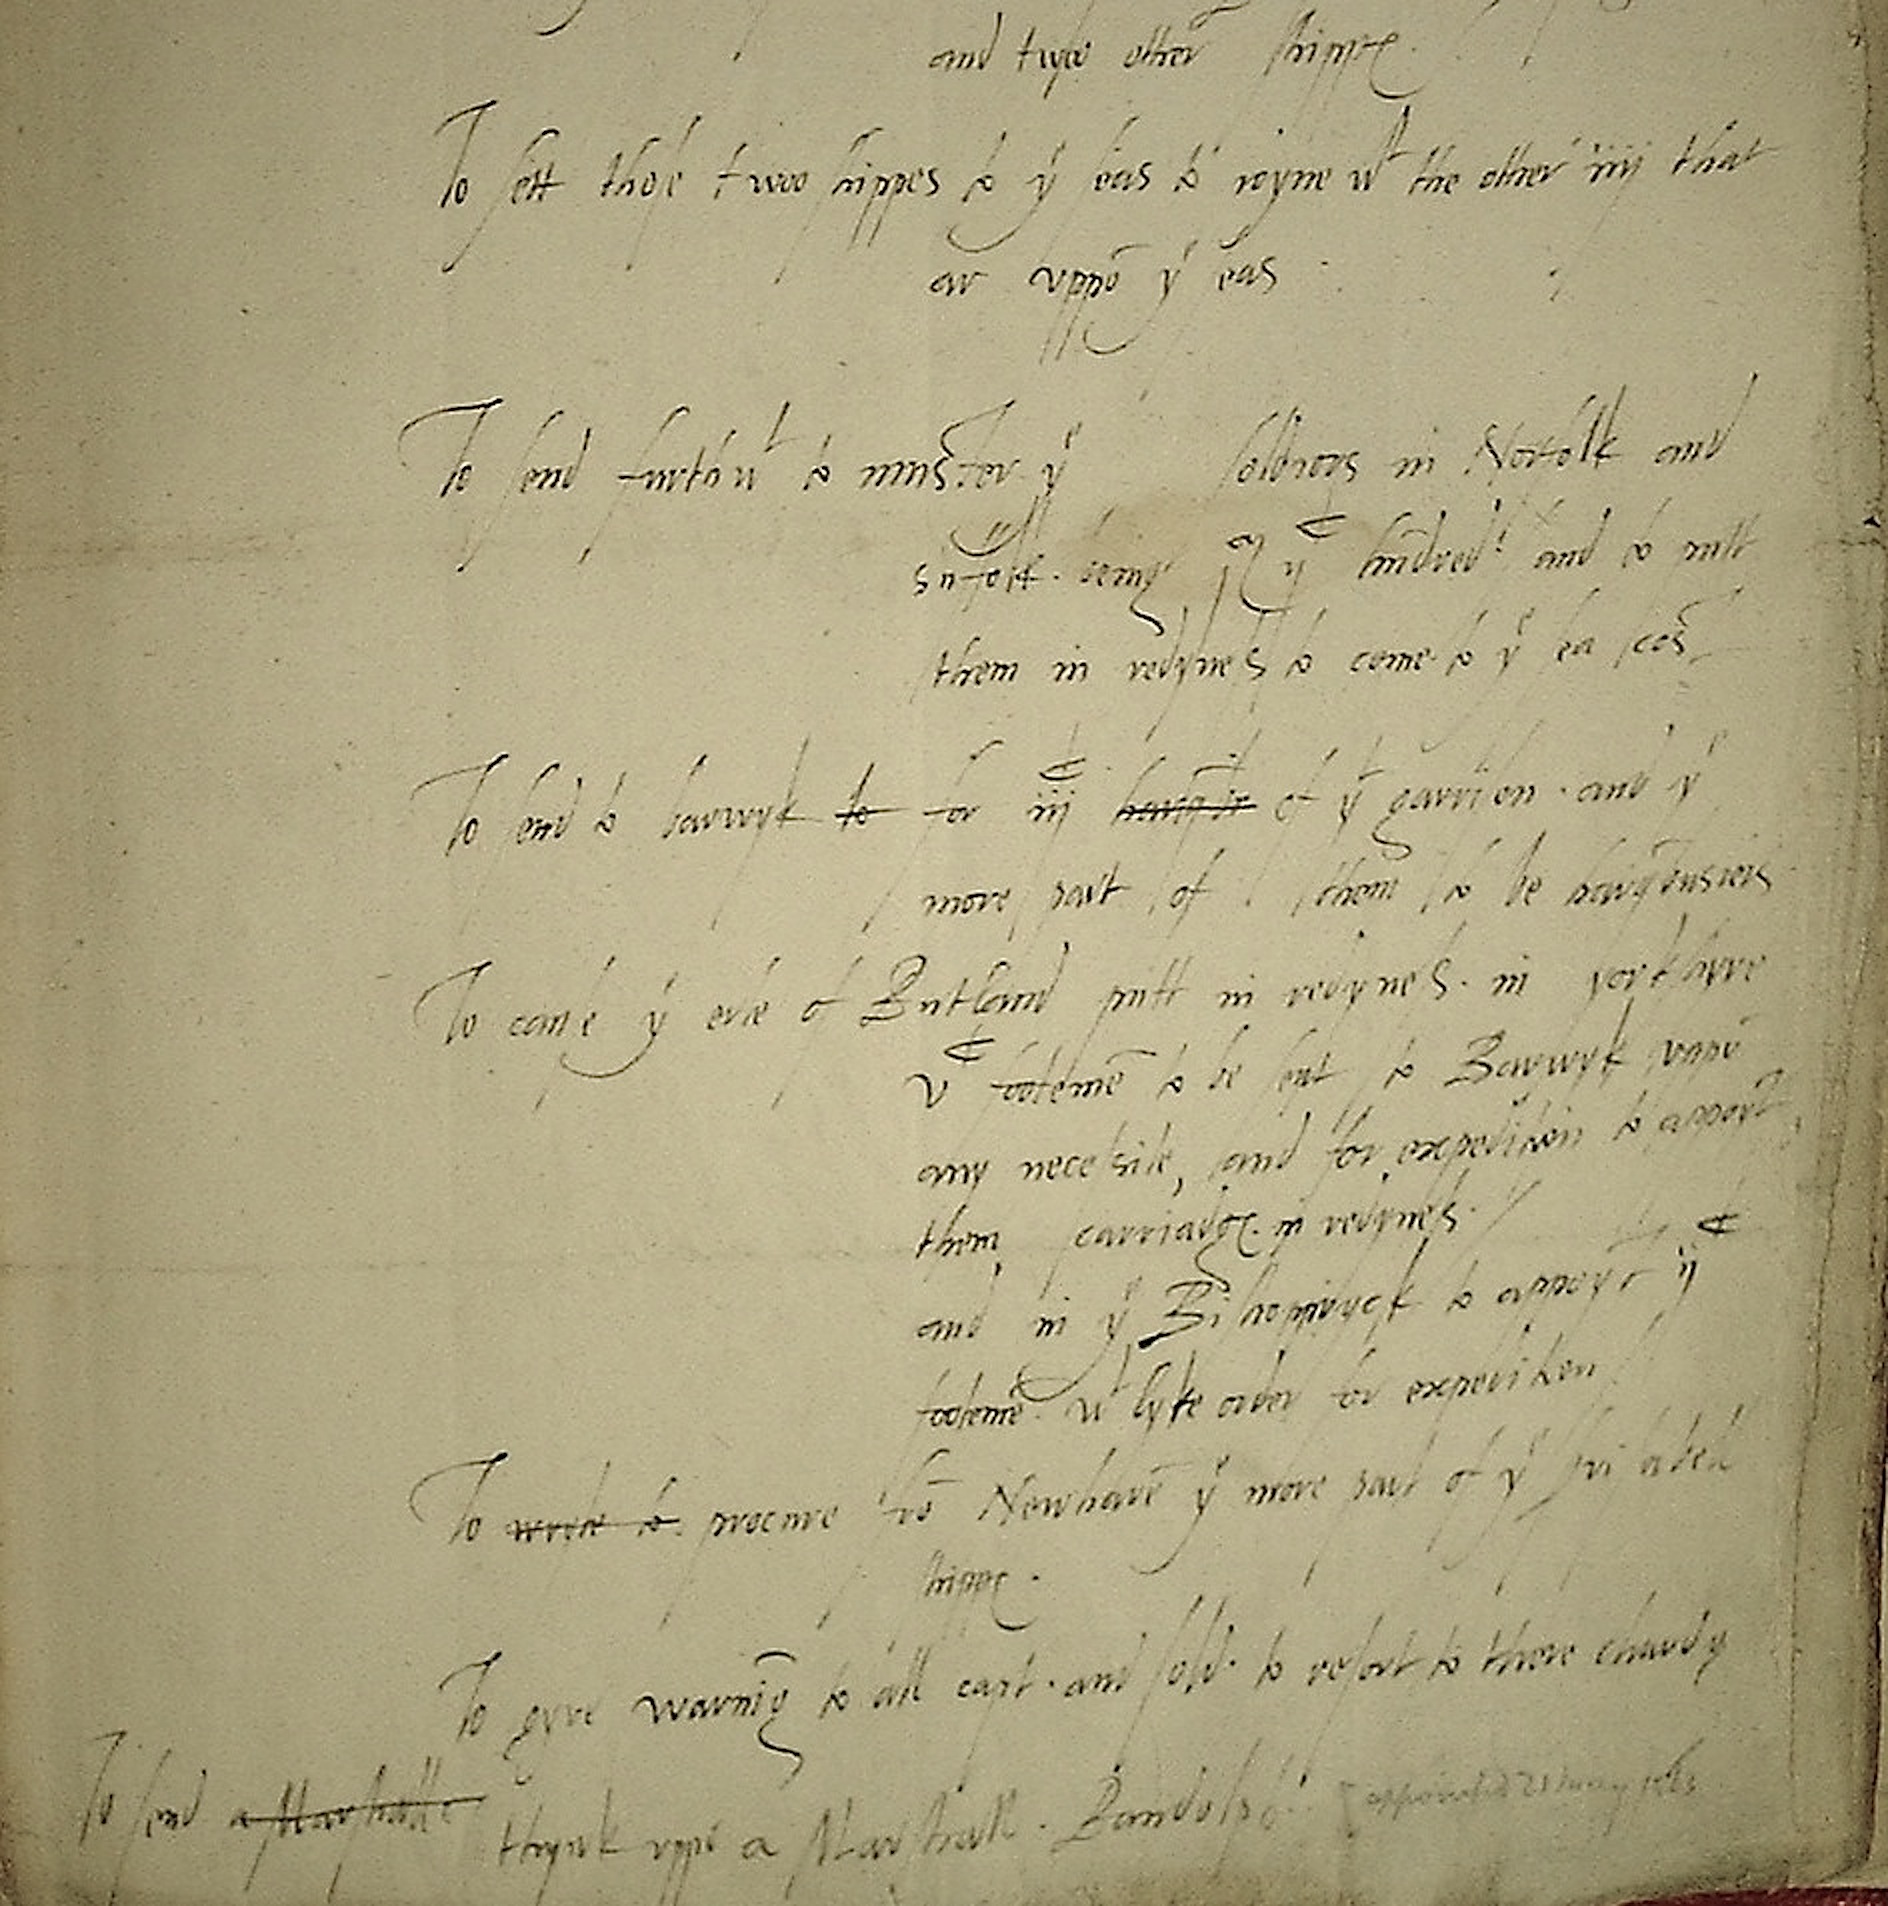 and twoo other shippes
To sett those twoo shippes to yͤ seas to ioyne wᵗ the other iiij that
ar uppō yͤ seas
To send furthwᵗ to muster yͤ soldiors in Norfolk and
Suffolk being yͤ hundred and to putt
them in redynes to come to yͤ sea cost
To send to barwyk to for iijᶜ of yͤ garrison . and yͤ
more part of them to be harquebusiers
To cause yͤ erle of Rutland putt in redynes . in yorkshyre
vᶜ footemē to be sent to Barwyk uppō
any necessite, and for expedition to appoynt
them carriadges in redynes .
and in yͤ Bishoprick to appoynt ijᶜ
footemē . wᵗ lyke order for expedition
To wryte to procure frō Newhavē yͤ more part of yͤ
shippes .
To gyve warnīg to all capt . and sold . to resort to there chardg
To send a Marshall thynk uppō a Marshall . Randolph